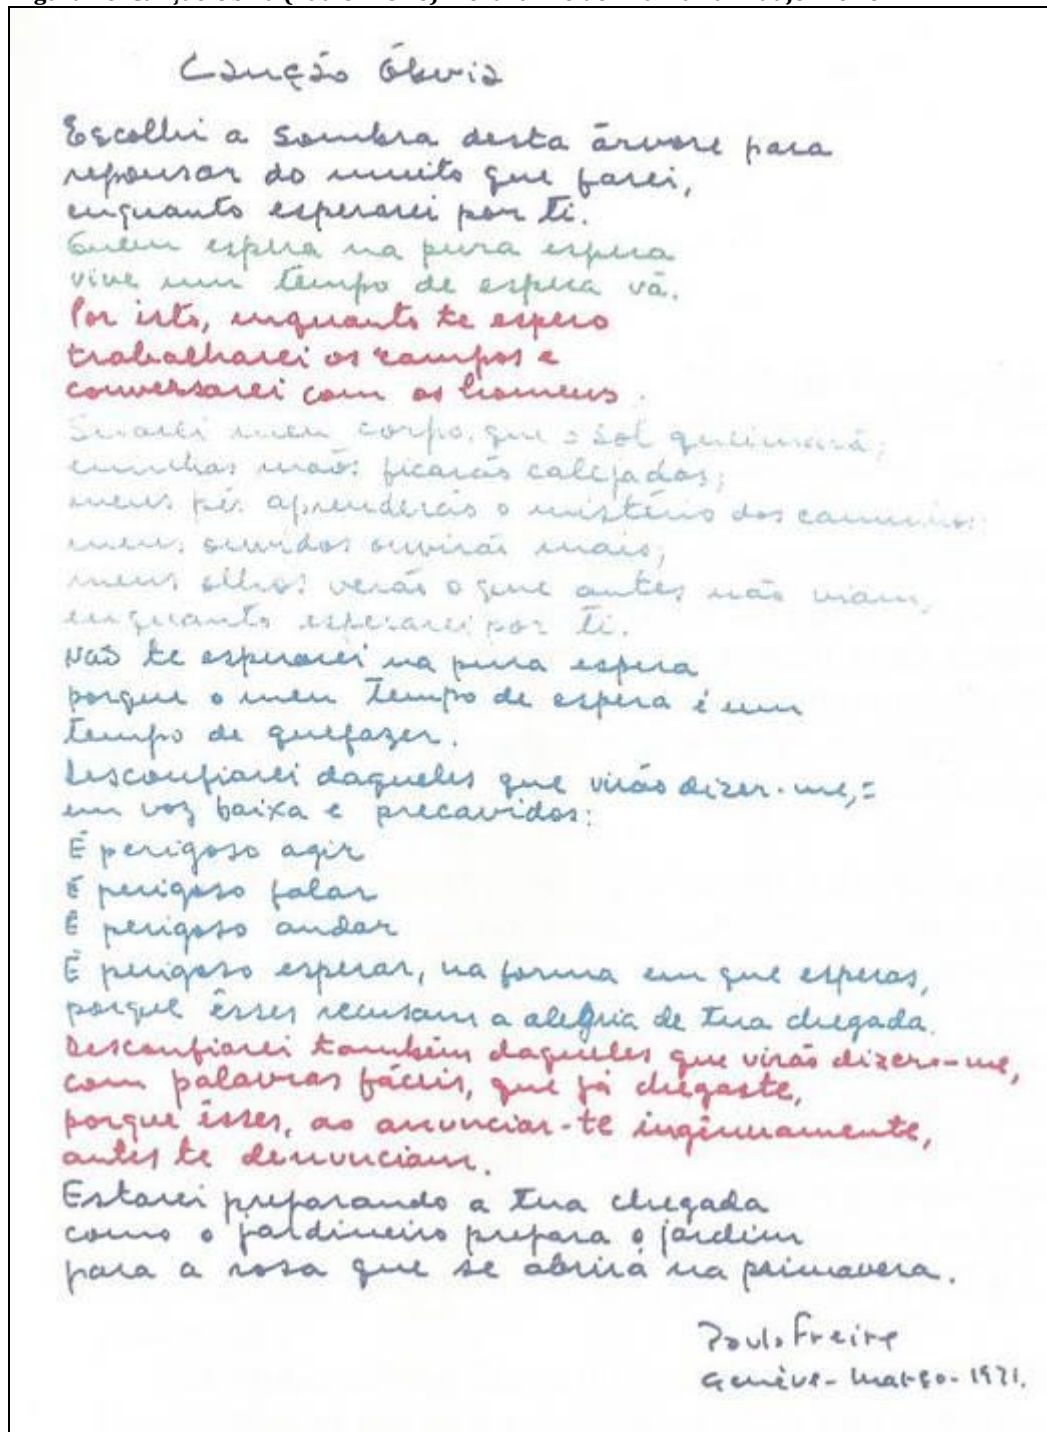 Canção Óbvia
Escolhi a sombra desta árvore para
repousar do muito que farei,
enquanto esperarei por ti.
Quem espera na pura espera
vive um tempo de espera vã.
Por isto, enquanto te espero
trabalharei os campos e
conversarei com os homens.
Suarei meu corpo, que o sol queimará;
minhas mãos ficarão calejadas;
meus pés aprenderão o mistério dos caminhos;
meus ouvidos ouvirão mais;
meus olhos verão o que antes não viam,
enquanto esperarei por ti.
Não te esperarei na pura espera
porque o meu tempo de espera é um
tempo de quefazer.
Desconfiarei daqueles que virão dizer-me,:
em voz baixa e precavidos:
É perigoso agir
É perigoso falar
É perigoso andar
É perigoso esperar, na forma em que esperas,
porque êsses recusam a alegria de tua chegada.
Desconfiarei também daqueles que virão dizer-me,
com palavras fáceis, que já chegaste,
porque êsses, ao anunciar-te ingênuamente,
antes te denunciam.
Estarei preparando a tua chegada
como o jardineiro prepara o jardim
para a rosa que se abrirá na primavera.
Paulo Freire
Genève-março-1971.